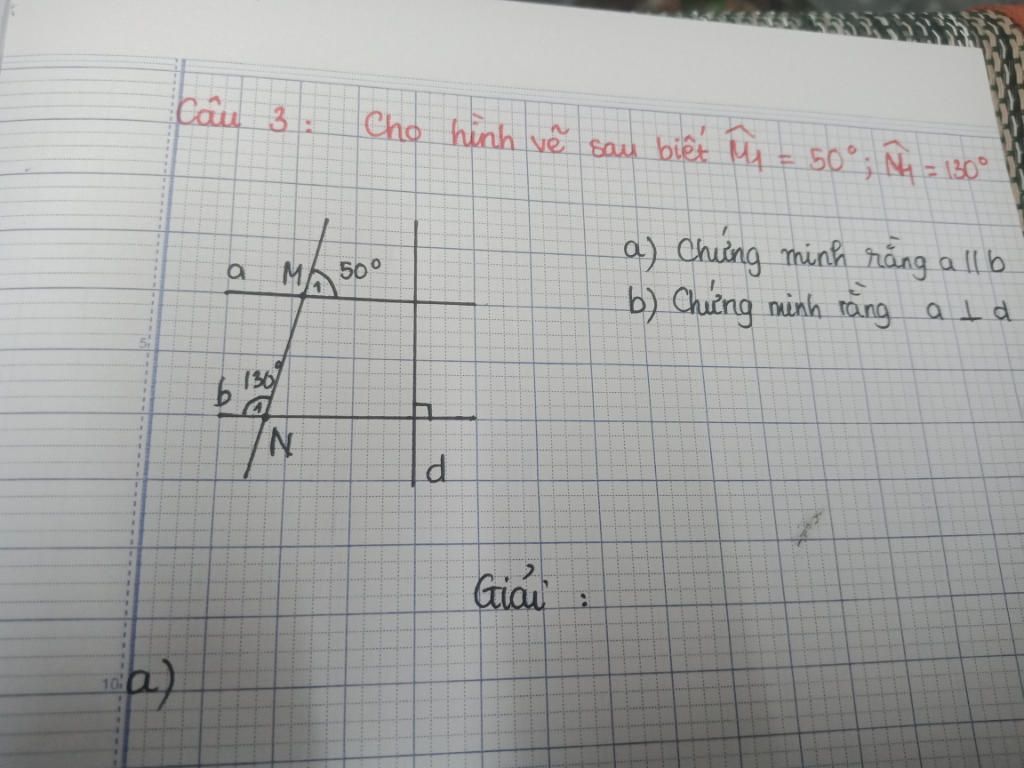 Câu 3 : Cho hình vẽ sau biết M̂₁ = 50° ; N̂₁ = 130°
a M 1 50°
a) Chứng minh rằng a // b
b) Chứng minh rằng a ⊥ d
5
130°
b 1
N
d
Giải :
10 a)